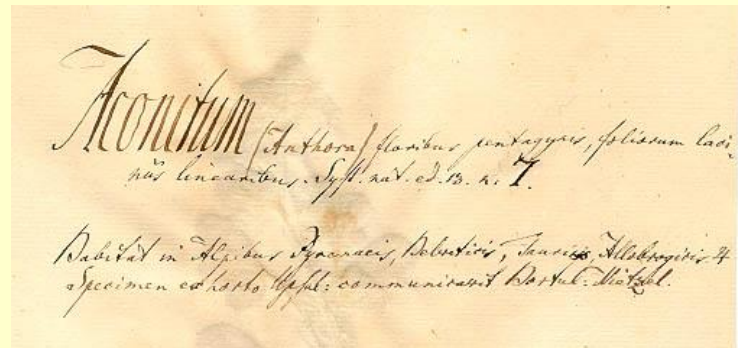 Aconitum (Anthora) floribus pentagynis, foliorum laci-
niis linearibus. Syst. nat. ed. 13. n. 7.
Habitat in Alpibus Pyrenaeis, Helveticis, Tauricis, Allobrogicis ♃
Specimen ex horto Upsal: communicavit Hortul: Nietzel.